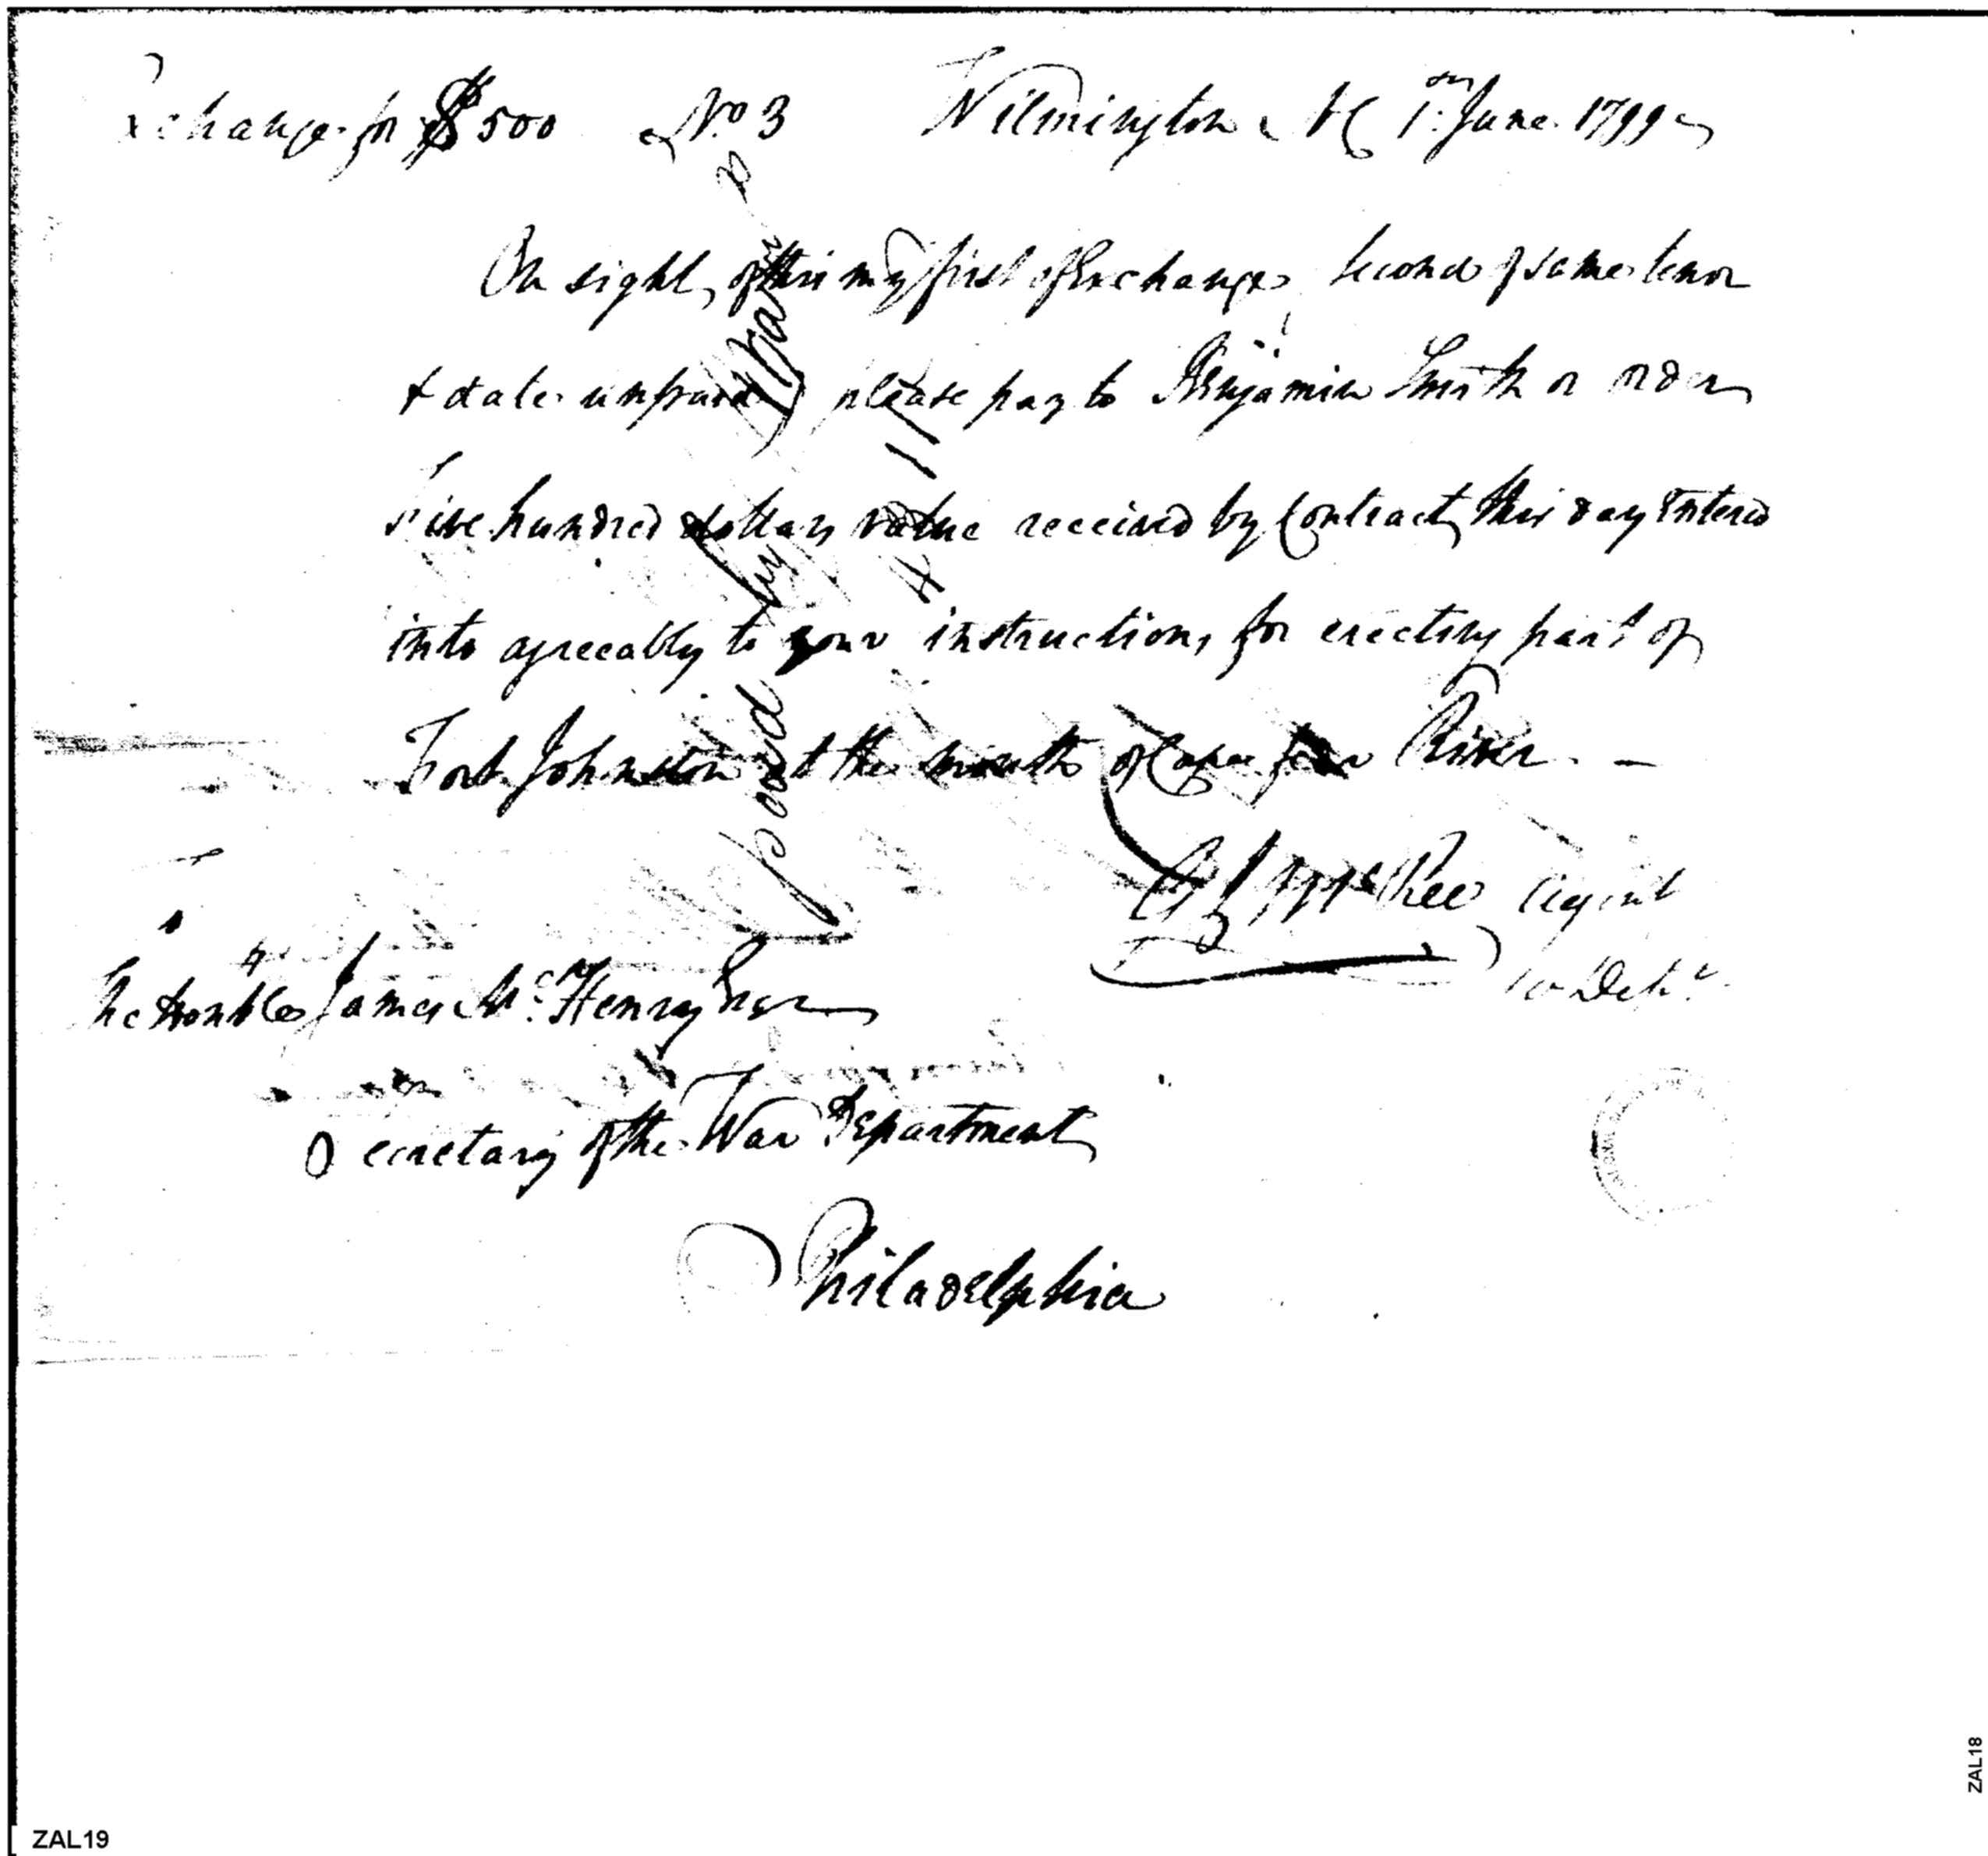 Exchange for $500 No 3 Wilmington NC 1st June 1799
On sight of this my first of Exchange, Second of same tenor
& date unpaid please pay to Benjamin Smith or order
Five hundred dollars value received by Contract this day Entered
into agreeably to your instructions for erecting part of
Fort Johnston at the mouth of Cape fear River. —
McRee Agent
W Dept.
The Honble James McHenry Esqr
Secretary of the War Department
Philadelphia
ZAL19
ZAL18